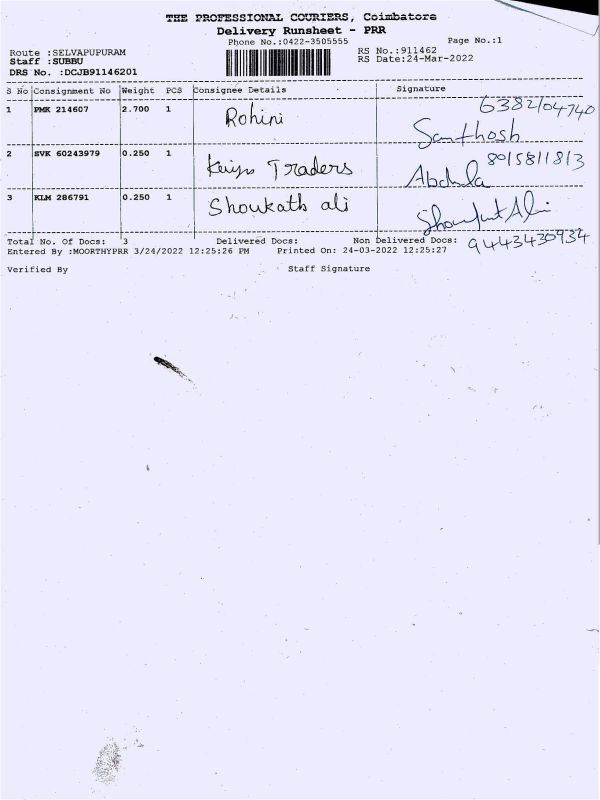 THE PROFESSIONAL COURIERS, Coimbatore
Delivery Runsheet - PRR
Phone No.:0422-3505555
Page No.:1
Route :SELVAPUPURAM
RS No.:911462
Staff :SUBBU
RS Date:24-Mar-2022
DRS No. :DCJB91146201
S No Consignment No Weight PCS Consignee Details Signature
1 PMK 214607 2.700 1 Rohini 6382104740
Santhosh
2 SVK 60243979 0.250 1 Traders 8015811813
Abdula
3 KLM 286791 0.250 1 Shoukath ali
Ali
Total No. Of Docs: 3 Delivered Docs: Non Delivered Docs: 9443430934
Entered By :MOORTHYPRR 3/24/2022 12:25:26 PM Printed On: 24-03-2022 12:25:27
Verified By Staff Signature